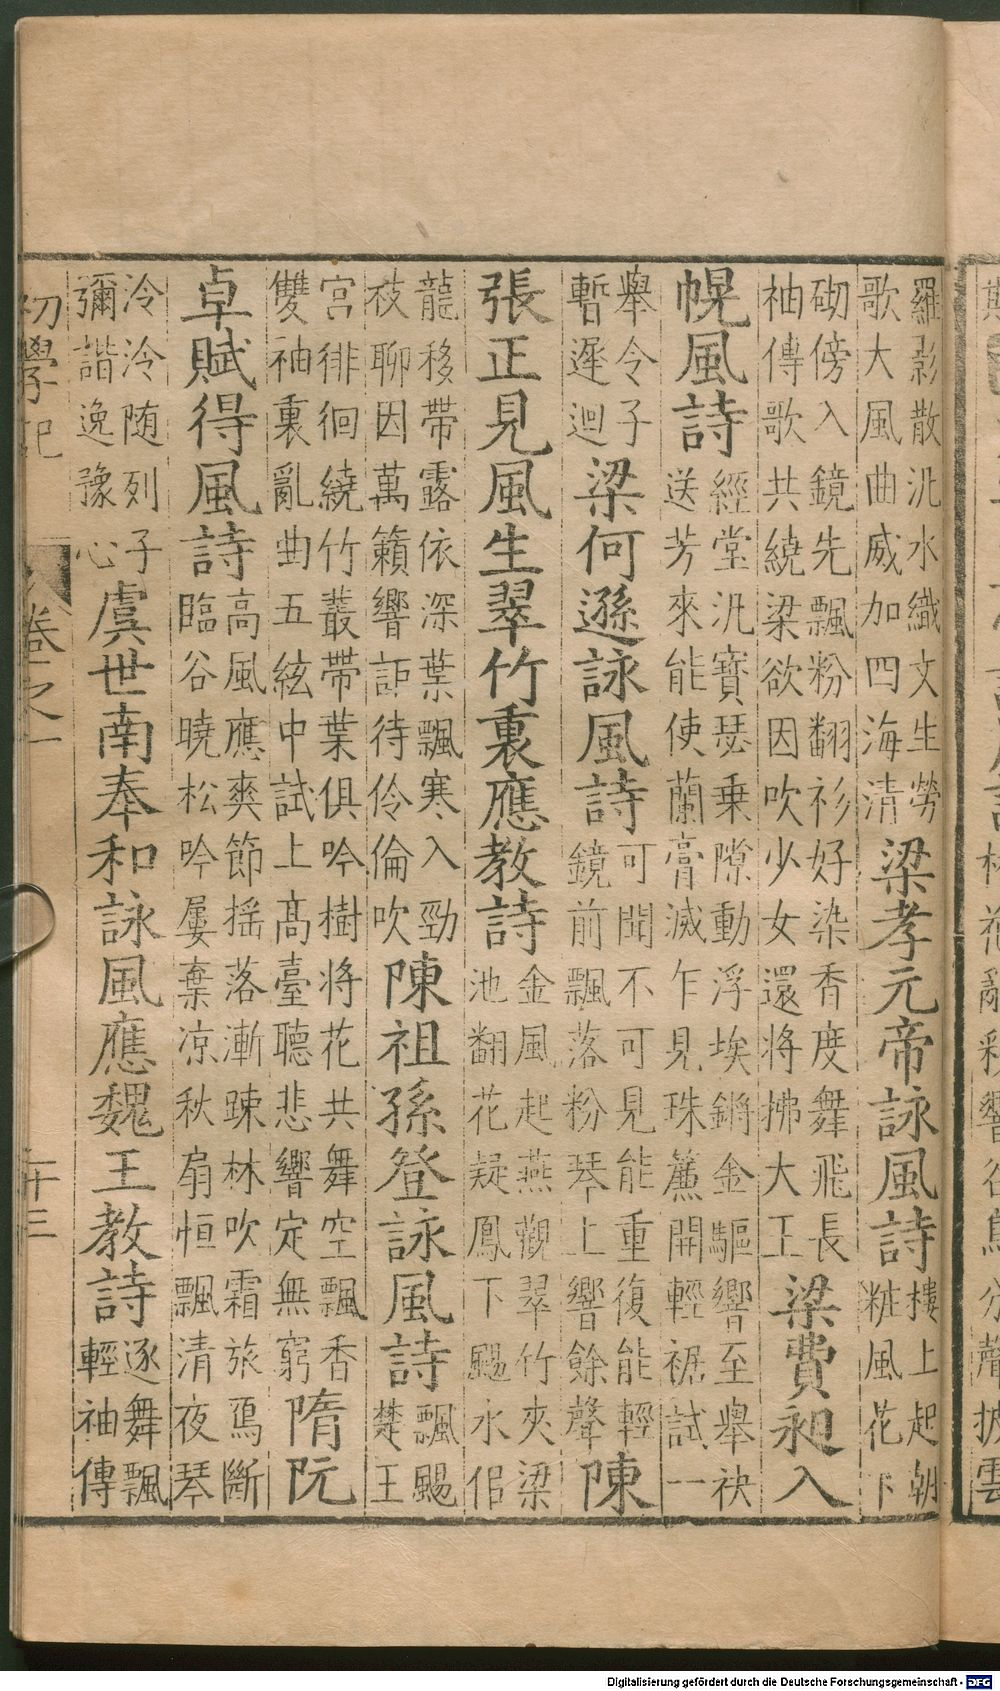 羅影散氿水織文生勞
歌大風曲威加四海清
梁孝元帝詠風詩
樓上起朝
粧風花下
砌傍入鏡先飄粉翻衫好染香度舞飛長
袖傳歌共繞梁欲因吹少女還將拂大王
梁費昶入
幌風詩
經堂汎寶瑟乗隙動浮埃鏘金驅響至舉袂
送芳來能使蘭膏滅乍見珠簾開輕裾試一
舉令子
暫遲迴
梁何遜詠風詩
可聞不可見能重復能輕
鏡前飄落粉琴上響餘聲
陳
張正見風生翠竹裏應教詩
金風起燕觀翠竹夾梁
池翻花疑鳳下颺水似
龍移帶露依深葉飄寒入勁
枝聊因萬籟響詎待伶倫吹
陳祖孫登詠風詩
飄颺
楚王
宫徘徊繞竹叢帶葉俱吟樹将花共舞空飄香
雙袖裏亂曲五絃中試上髙臺聽悲響定無窮
隋阮
卓賦得風詩
高風應爽節摇落漸踈林吹霜旅鴈斷
臨谷曉松吟屢棄凉秋扇恒飄清夜琴
泠泠随列子
彌諧逸豫心
虞世南奉和詠風應魏王教詩
逐舞飄
輕袖傳
初學記
卷之一
二十三
Digitalisierung gefördert durch die Deutsche Forschungsgemeinschaft - DFG